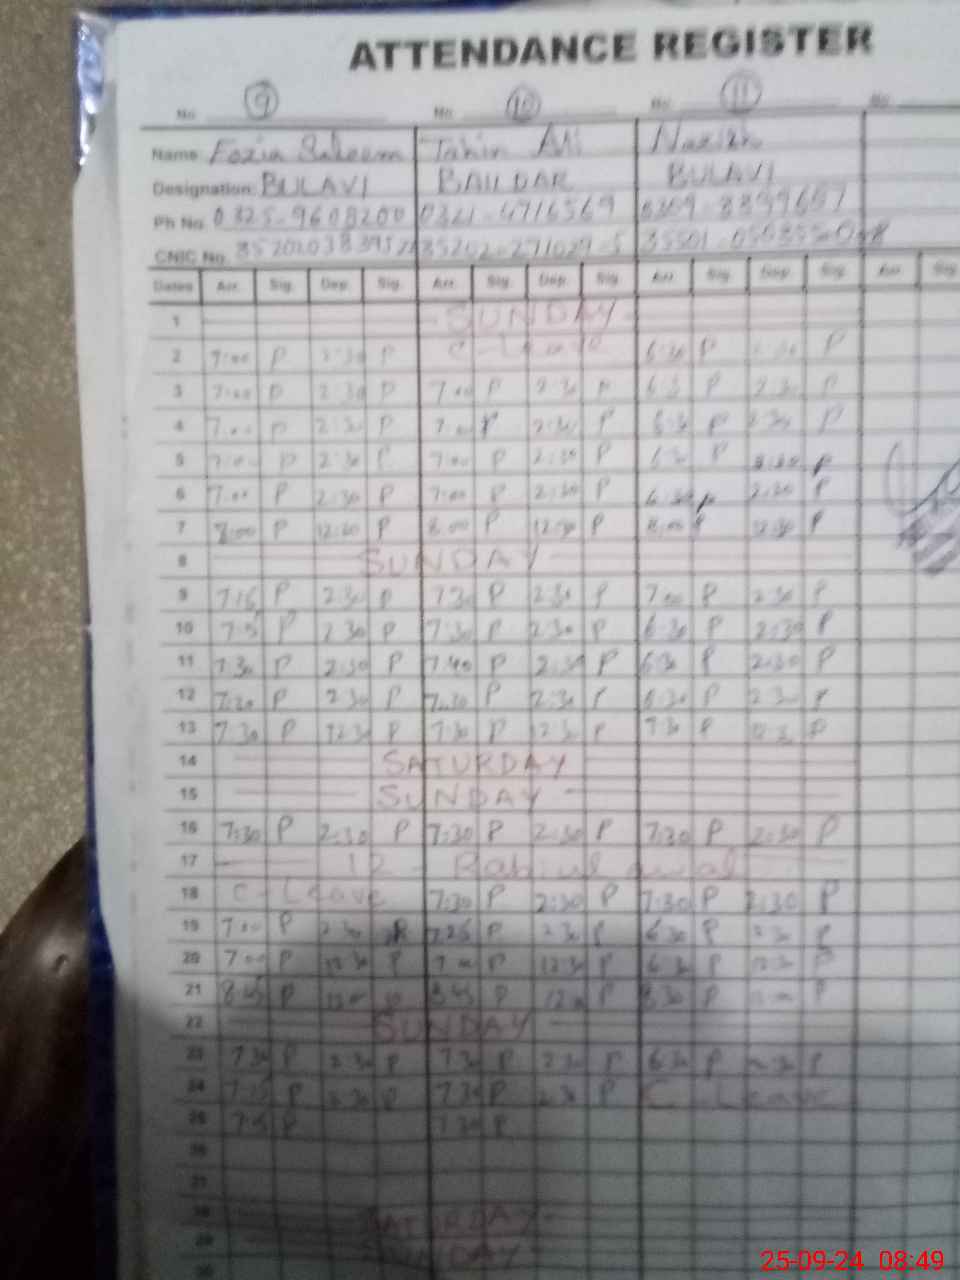 ATTENDANCE REGISTER
No. 9 No. 10 No. 11 No.
Name Fozia Saleem Tahir Ali Nazish
Designation BULAVI BAILDAR BULAVI
Ph No. 0325-9608200 0321-4716569
CNIC No.
Dates Arr. Sig. Dep. Sig. Arr. Sig. Dep. Sig. Arr. Sig. Dep. Sig. Arr. Sig.
1 SUNDAY
2 7:00 P 2:30 P C-Leave 6:30 P P
3 7:00 P 2:30 P 7:00 P 2:30 P 6:3 P 2:30 P
4 7:00 P 2:30 P 7:00 P 2:30 P 6:3 P 2:30 P
5 7:00 P 2:30 P 7:00 P 2:30 P 6:30 P 2:30 P
6 7:00 P 2:30 P 7:00 P 2:30 P 6:30 P 2:30 P
7 8:00 P 12:30 P 8:00 P 12:30 P 8:00 P 12:30 P
8 SUNDAY
9 7:15 P 2:30 P 7:30 P 2:30 P 7:00 P 2:30 P
10 P 2:30 P 7:30 P 2:30 P 6:30 P 2:30 P
11 7:30 P 2:30 P 7:40 P 2:30 P 6:30 P 2:30 P
12 7:30 P 2:30 P 7:30 P 2:30 P 6:30 P 2:30 P
13 7:30 P 12:30 P 7:30 P 12:30 P 7:30 P P
14 SATURDAY
15 SUNDAY
16 7:30 P 2:30 P 7:30 P 2:30 P 7:30 P 2:30 P
17 12 - Rabiul awal
18 C-Leave 7:30 P 2:30 P 7:30 P 2:30 P
19 7:00 P 2:30 P 7:25 P 2:30 P 6:30 P 2:30 P
20 7:00 P 12:30 P 7:00 P 12:30 P 6:30 P 12:30 P
21 8:45 P 12:00 P 8:45 P 12:00 P 8:30 P P
22 SUNDAY
23 7:30 P 2:30 P 7:30 P 2:30 P 6:30 P 2:30 P
24 7:15 P 2:30 P 7:35 P 2:30 P C Leave
25 P 7:30 P
26
27
28 SATURDAY
29 SUNDAY
30
25-09-24 08:49